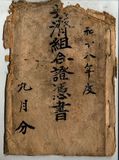 和十八年度
濟組合證憑書
九月分